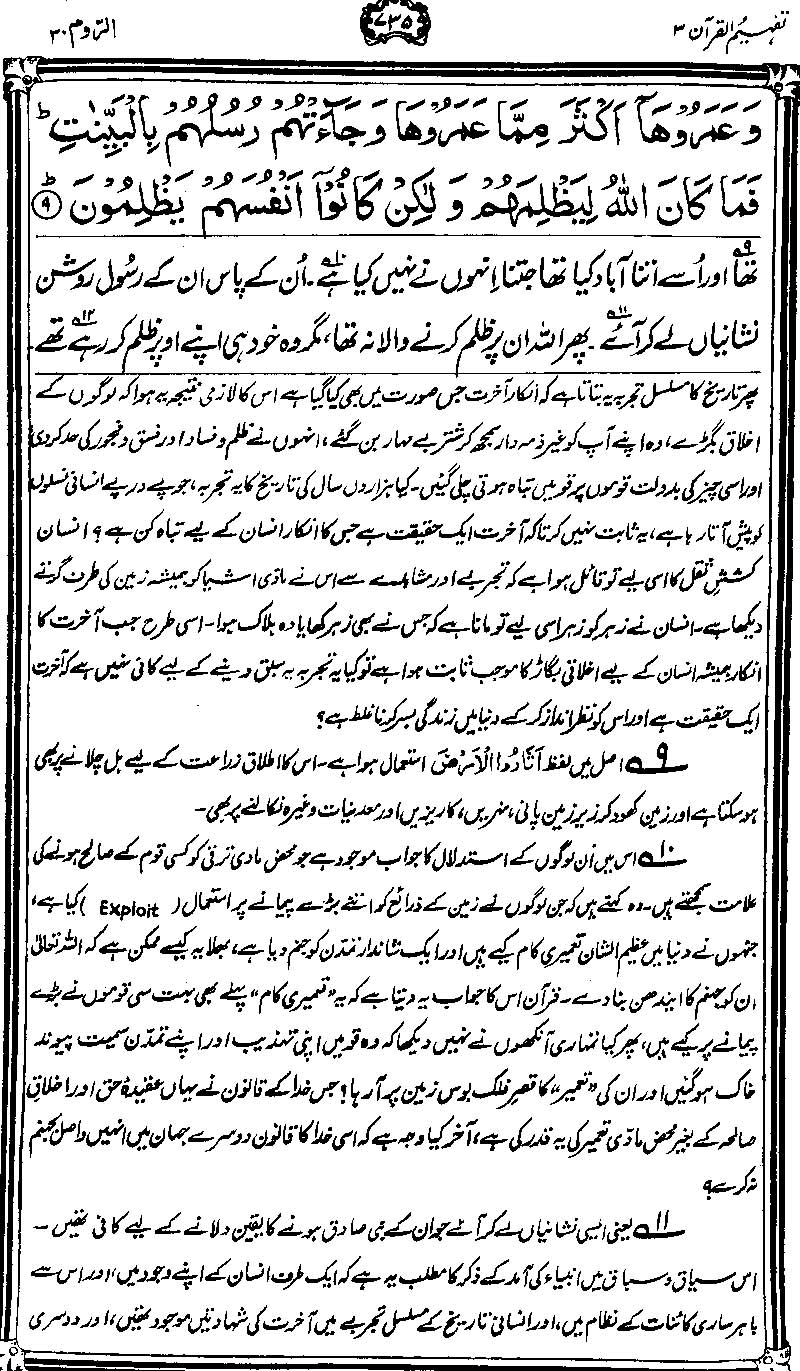 تفہیم القرآن ۳
۷۳۵
الرّوم ۳۰
وَّعَمَرُوْهَآ اَكْثَرَ مِمَّا عَمَرُوْهَا وَجَآءَتْهُمْ رُسُلُهُمْ بِالْبَيِّنٰتِ ؕ
فَمَا كَانَ اللّٰهُ لِيَظْلِمَهُمْ وَ لٰكِنْ كَانُوْٓا اَنْفُسَهُمْ يَظْلِمُوْنَ ؕ ﴿۹﴾
تھا۹ اور اُسے اتنا آباد کیا تھا جتنا اِنہوں نے نہیں کیا ہے۱۰۔ اُن کے پاس ان کے رسُول روشن
نشانیاں لے کر آئے۱۱۔ پھر اللہ ان پر ظلم کرنے والا نہ تھا، مگر وہ خود ہی اپنے اوپر ظلم کر رہے تھے۱۲۔
پھر تاریخ کا مسلسل تجربہ یہ بتاتا ہے کہ انکارِ آخرت جس صورت میں بھی کیا گیا ہے اس کا لازمی نتیجہ یہ ہوا کہ لوگوں کے
اخلاق بگڑے، وہ اپنے آپ کو غیر ذمہ دار سمجھ کر شترِ بے مہار بن گئے، انہوں نے ظلم و فساد اور فسق و فجور کی حد کر دی
اور اسی چیز کی بدولت قوموں پر قومیں تباہ ہوتی چلی گئیں۔ کیا ہزاروں سال کی تاریخ کا یہ تجربہ، جو پے در پے انسانی نسلوں
کو پیش آتا رہا ہے، یہ ثابت نہیں کرتا کہ آخرت ایک حقیقت ہے جس کا انکار انسان کے لیے تباہ کن ہے؟ انسان
کششِ ثقل کا اسی لیے تو قائل ہوا ہے کہ تجربے اور مشاہدے سے اس نے مادّی اشیا کو ہمیشہ زمین کی طرف گرتے
دیکھا ہے۔ انسان نے زہر کو زہر اسی لیے تو مانا ہے کہ جس نے بھی زہر کھایا وہ ہلاک ہوا۔ اسی طرح جب آخرت کا
انکار ہمیشہ انسان کے لیے اخلاقی بگاڑ کا موجب ثابت ہوا ہے تو کیا یہ تجربہ یہ سبق دینے کے لیے کافی نہیں ہے کہ آخرت
ایک حقیقت ہے اور اس کو نظر انداز کر کے دنیا میں زندگی بسر کرنا غلط ہے؟
۹ اصل میں لفظ اَثَارُوا الْاَرْضَ استعمال ہوا ہے۔ اس کا اطلاق زراعت کے لیے ہل چلانے پر بھی
ہو سکتا ہے اور زمین کھود کر زیرِ زمین پانی، نہریں، کاریزیں اور معدنیات وغیرہ نکالنے پر بھی۔
۱۰ اس میں اُن لوگوں کے استدلال کا جواب موجود ہے جو محض مادی ترقی کو کسی قوم کے صالح ہونے کی
علامت سمجھتے ہیں۔ وہ کہتے ہیں کہ جن لوگوں نے زمین کے ذرائع کو اتنے بڑے پیمانے پر استعمال (Exploit) کیا ہے،
جنہوں نے دنیا میں عظیم الشان تعمیری کام کیے ہیں اور ایک شاندار تمدن کو جنم دیا ہے، بھلا یہ کیسے ممکن ہے کہ اللہ تعالیٰ
ان کو جہنم کا ایندھن بنا دے۔ قرآن اس کا جواب یہ دیتا ہے کہ یہ ”تعمیری کام“ پہلے بھی بہت سی قوموں نے بڑے
پیمانے پر کیے ہیں، پھر کیا تمہاری آنکھوں نے نہیں دیکھا کہ وہ قومیں اپنی تہذیب اور اپنے تمدّن سمیت پیوند
خاک ہو گئیں اور ان کی ”تعمیر“ کا قصرِ فلک بوس زمین پر آ رہا؟ جس خدا کے قانون نے یہاں عقیدۂ حق اور اخلاقِ
صالحہ کے بغیر محض مادّی تعمیر کی یہ قدر کی ہے، آخر کیا وجہ ہے کہ اسی خدا کا قانون دوسرے جہان میں انہیں واصلِ جہنم
نہ کرے؟
۱۱ یعنی ایسی نشانیاں لے کر آئے جو ان کے نبی صادق ہونے کا یقین دلانے کے لیے کافی تھیں۔
اس سیاق و سباق میں انبیاء کی آمد کے ذکر کا مطلب یہ ہے کہ ایک طرف انسان کے اپنے وجود میں، اور اس سے
باہر ساری کائنات کے نظام میں، اور انسانی تاریخ کے مسلسل تجربے میں آخرت کی شہادتیں موجود تھیں، اور دوسری